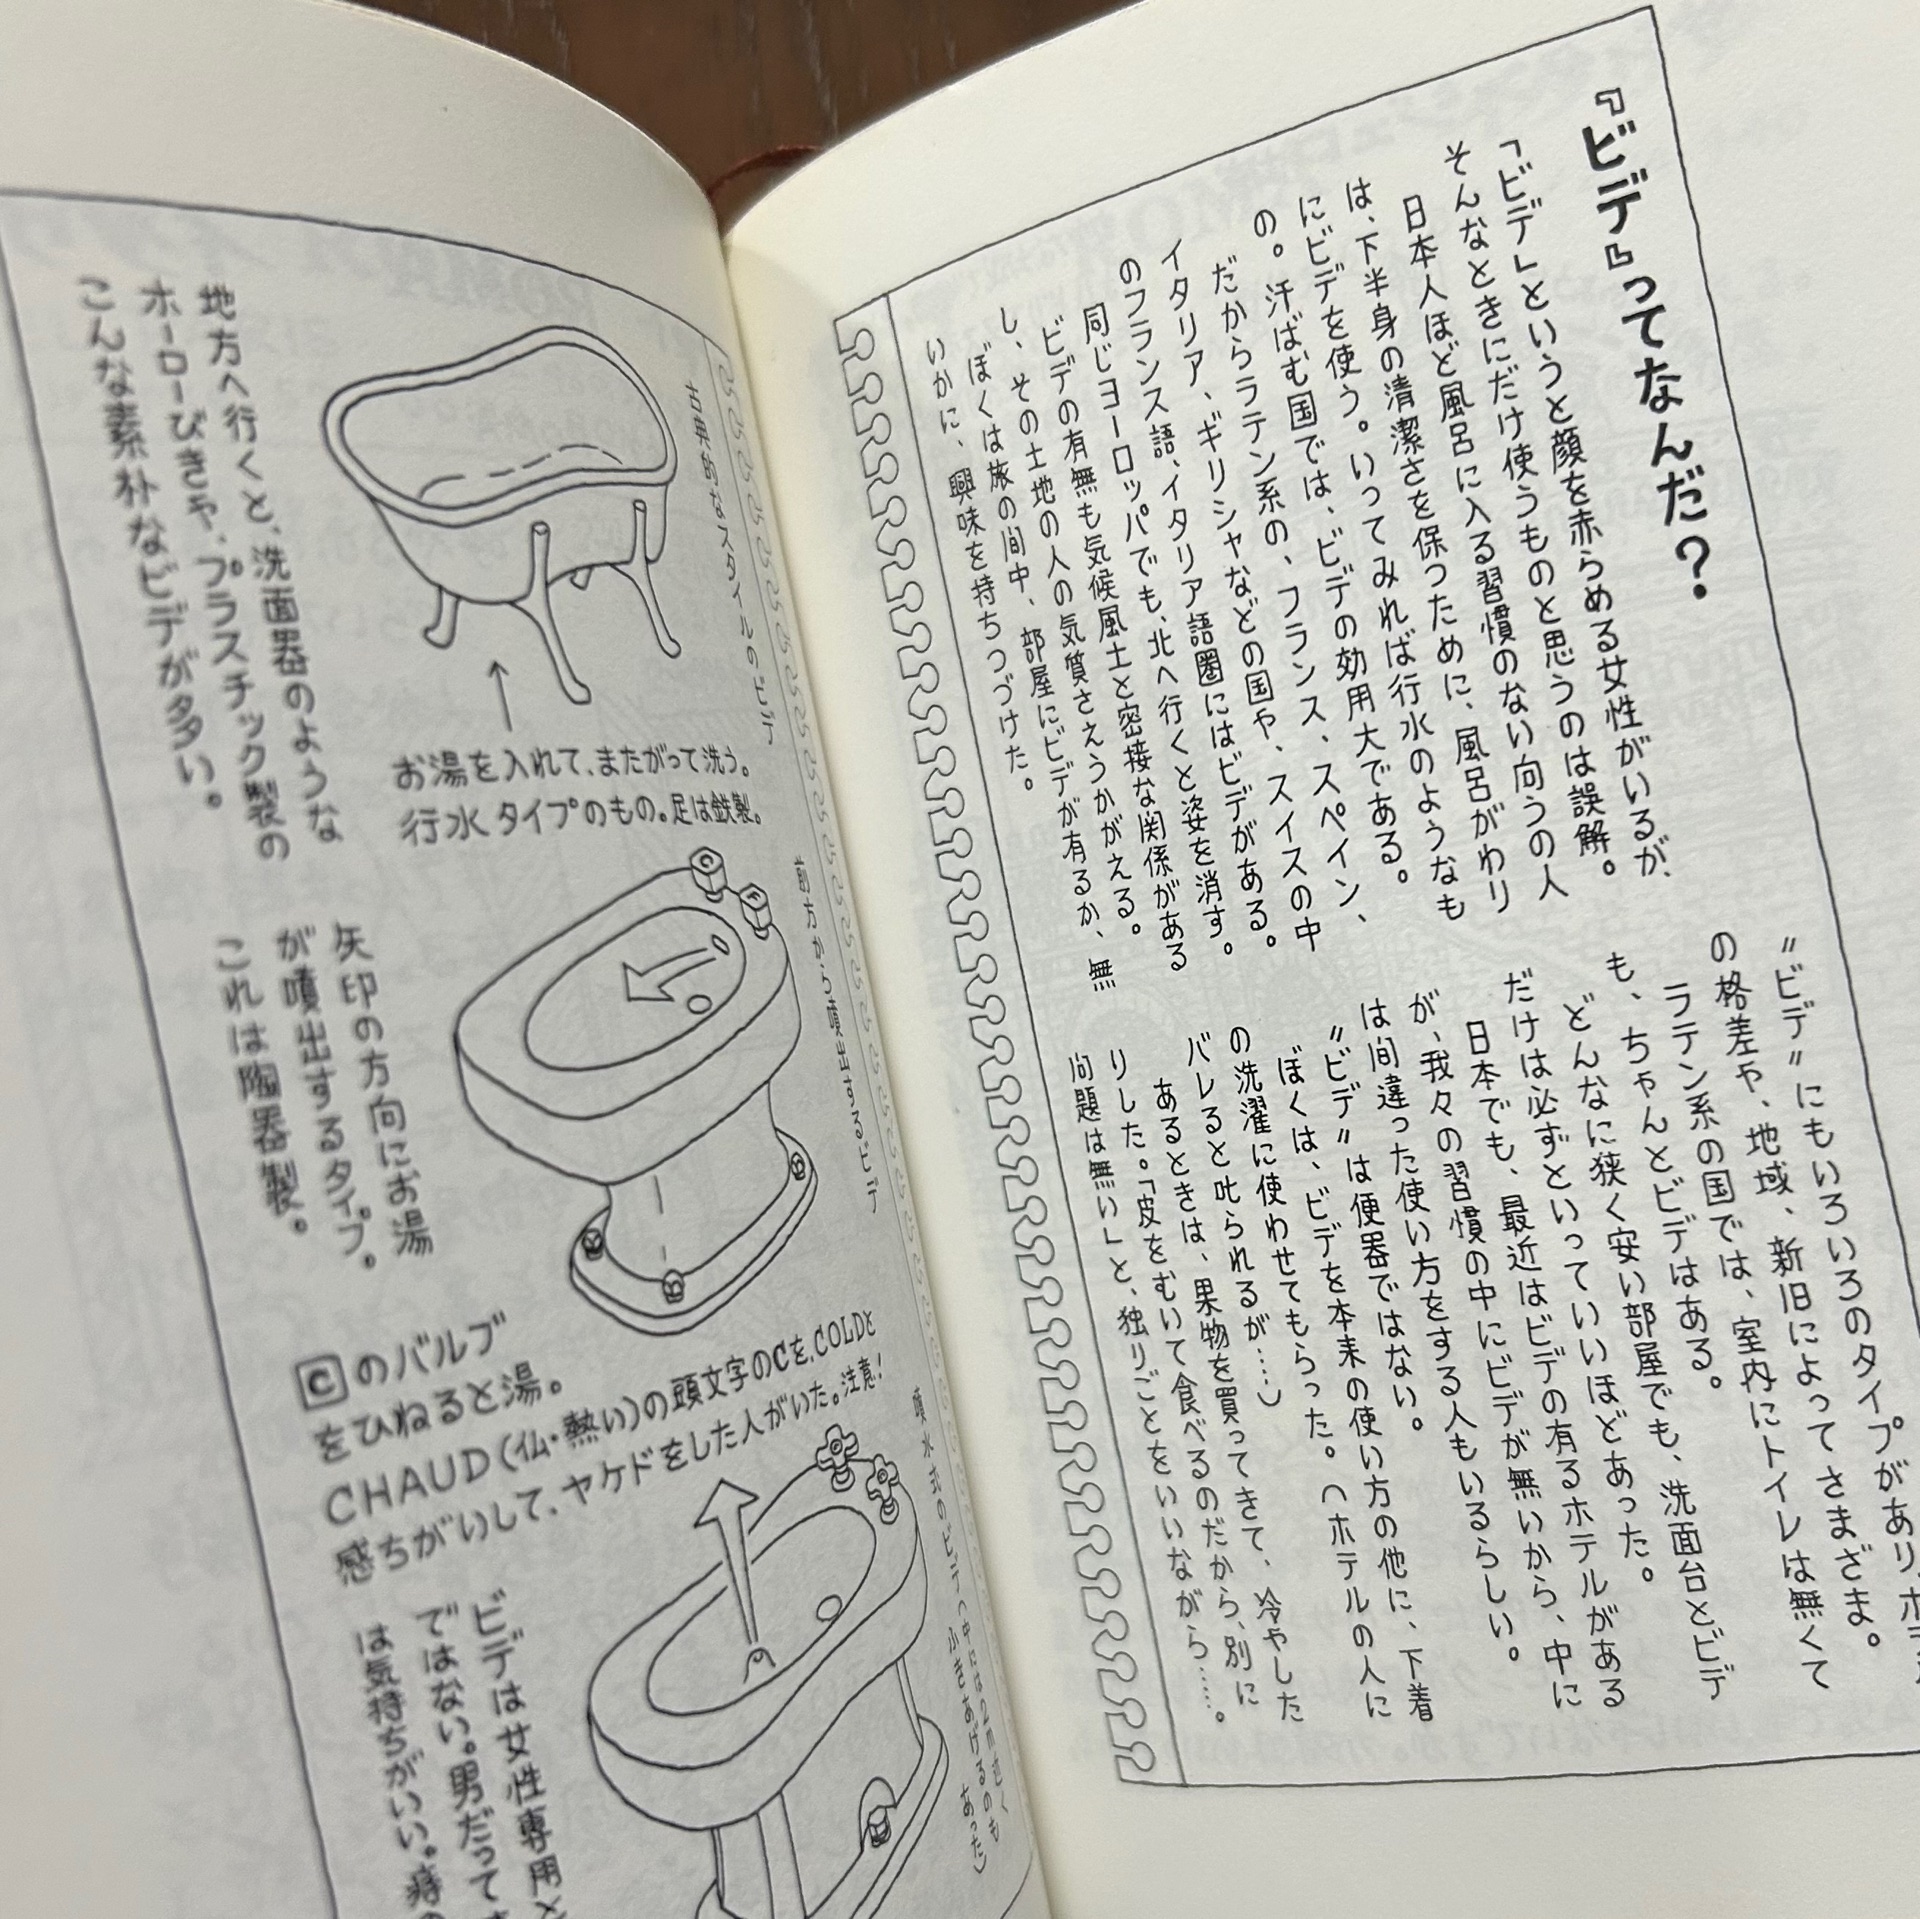 『ビデ』ってなんだ？
「ビデ」というと顔を赤らめる女性がいるが、
そんなときにだけ使うものと思うのは誤解。
日本人ほど風呂に入る習慣のない向うの人
は、下半身の清潔さを保つために、風呂がわり
にビデを使う。いってみれば行水のようなも
の。汗ばむ国では、ビデの効用大である。
だからラテン系の、フランス、スペイン、
イタリア、ギリシャなどの国や、スイスの中
のフランス語、イタリア語圏にはビデがある。
同じヨーロッパでも、北へ行くと姿を消す。
ビデの有無も気候風土と密接な関係がある
し、その土地の人の気質さえうかがえる。
ぼくは旅の間中、部屋にビデが有るか、無
いかに、興味を持ちつづけた。
〃ビデ〃にもいろいろのタイプがあり、ホテル
の格差や、地域、新旧によってさまざま。
ラテン系の国では、室内にトイレは無くて
も、ちゃんとビデはある。
どんなに狭く安い部屋でも、洗面台とビデ
だけは必ずといっていいほどあった。
日本でも、最近はビデの有るホテルがある
が、我々の習慣の中にビデが無いから、中に
は間違った使い方をする人もいるらしい。
〃ビデ〃は便器ではない。
ぼくは、ビデを本来の使い方の他に、下着
の洗濯に使わせてもらった。（ホテルの人に
バレると叱られるが…。）
あるときは、果物を買ってきて、冷やした
りした。「皮をむいて食べるのだから、別に
問題は無い」と、独りごとをいいながら……。
古典的なスタイルのビデ
お湯を入れて、またがって洗う。
行水タイプのもの。足は鉄製。
地方へ行くと、洗面器のような
ホーローびきや、プラスチック製の
こんな素朴なビデが多い。
前方から噴出するビデ
矢印の方向にお湯
が噴出するタイプ。
これは陶器製。
Cのバルブ
をひねると湯。
CHAUD（仏・熱い）の頭文字のCを、COLDと
感ちがいして、ヤケドをした人がいた。注意！
噴水式のビデ（中には2m近く
ふきあげるのも
あった）
ビデは女性専用と
ではない。男だって
は気持ちがいい。痔の